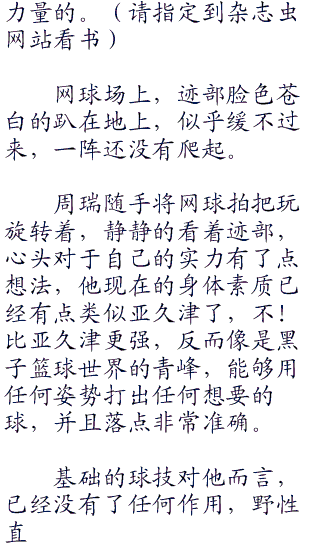 力量的。（请指定到杂志虫
网站看书）
网球场上，迹部脸色苍
白的趴在地上，似乎缓不过
来，一阵还没有爬起。
周瑞随手将网球拍把玩
旋转着，静静的看着迹部，
心头对于自己的实力有了点
想法，他现在的身体素质已
经有点类似亚久津了，不！
比亚久津更强，反而像是黑
子篮球世界的青峰，能够用
任何姿势打出任何想要的
球，并且落点非常准确。
基础的球技对他而言，
已经没有了任何作用，野性
直